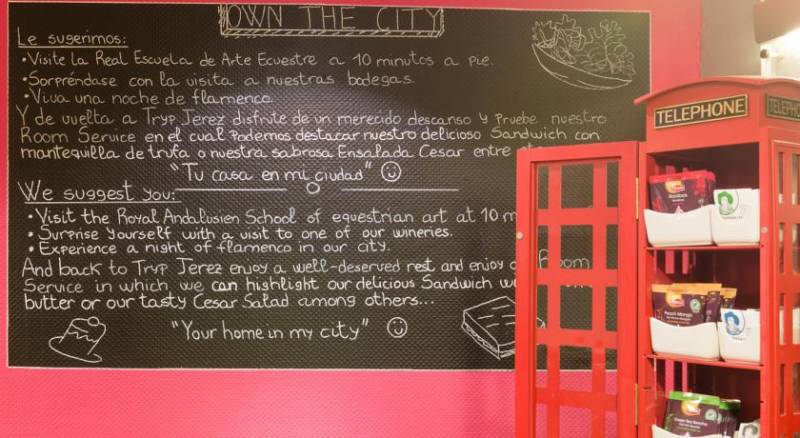 OWN THE CITY
Le sugerimos:
• Visite la Real Escuela de Arte Ecuestre a 10 minutos a pie.
• Sorpréndase con la visita a nuestras bodegas.
• Viva una noche de flamenco.
Y de vuelta a Tryp Jerez disfrute de un merecido descanso y Pruebe nuestro
Room Service en el cual Podemos destacar nuestro delicioso Sandwich con
mantequilla de trufa o nuestra sabrosa Ensalada Cesar entre
"Tu casa en mi ciudad"
We suggest you:
• Visit the Royal Andalusien School of equestrian art at 10 m
• Surprise Yourself with a visit to one of our wineries.
• Experience a night of flamenco in our city.
And back to Tryp Jerez enjoy a well-deserved rest and enjoy o Room
Service in which, we can highlight our delicious Sandwich w
butter or our tasty Cesar Salad among others...
"Your home in my city"
TELEPHONE
TELEPH